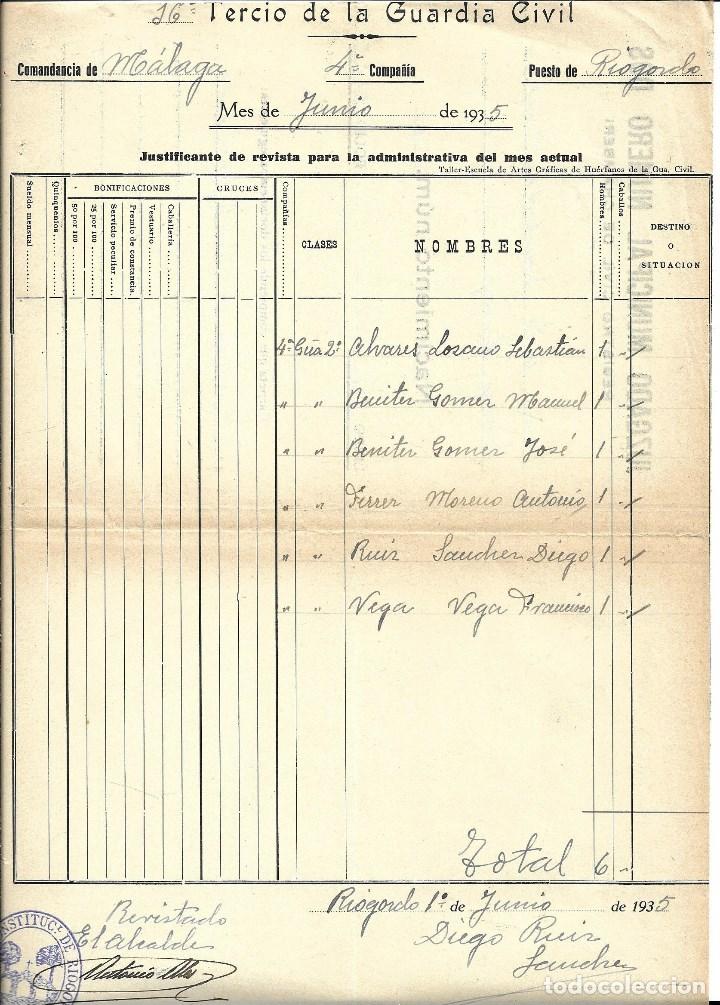 16º Tercio de la Guardia Civil
Comandancia de Málaga 4ª Compañía Puesto de Riogordo
Mes de Junio de 1935
Justificante de revista para la administrativa del mes actual
Taller-Escuela de Artes Gráficas de Huérfanos de la Gua. Civil.
Sueldo mensual
Quinquenios
BONIFICACIONES
50 por 100
25 por 100
Servicio peculiar
Premio de constancia
Vestuario
Caballería
CRUCES
Compañías
CLASES
NOMBRES
Hombres
Caballos
DESTINO
O
SITUACION
4ª Gúa 2º Alvares Lozano Sebastián 1 "
" " Benitez Gomez Manuel 1 "
" " Benitez Gomez José 1 "
" " Ferrer Moreno Antonio 1 "
" " Ruiz Sanchez Diego 1 "
" " Vega Vega Francisco 1 "
Total 6 "
Riogordo 1º de Junio de 1935
Revistado
El Alcalde
Antonio
Diego Ruiz
Sanchez
JUZGADO MUNICIPAL NUMERO DOS
Nacimiento núm.
todocoleccion.net